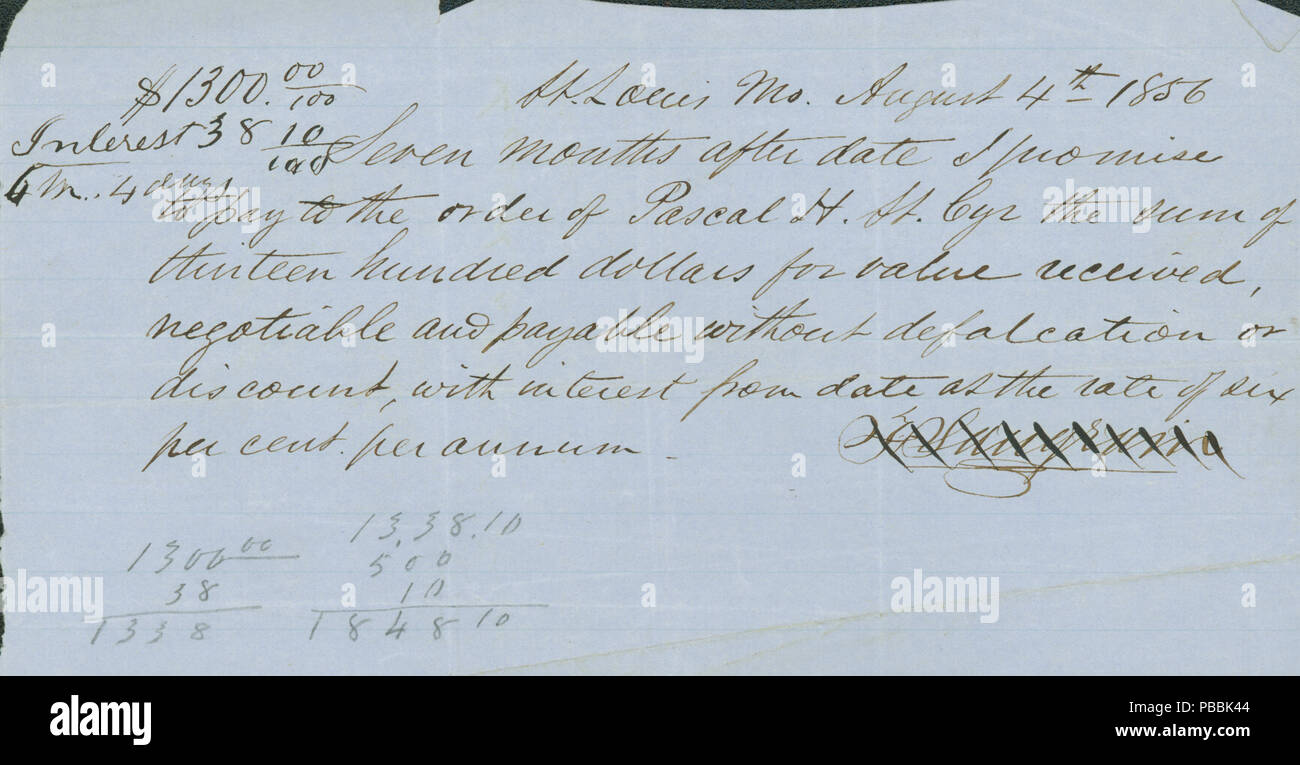 $1300. 00/100 St. Louis Mo. August 4th 1856
Interest 38 10/100 Seven months after date I promise
m. 4 days
to pay to the order of Pascal H. St. Cyr the sum of
thirteen hundred dollars for value received,
negotiable and payable without defalcation or
discount, with interest from date at the rate of six
per cent. per annum
1300 00
38
1338
13,38.10
500
10
1848 10
alamy
Image ID: PBBK44
www.alamy.com